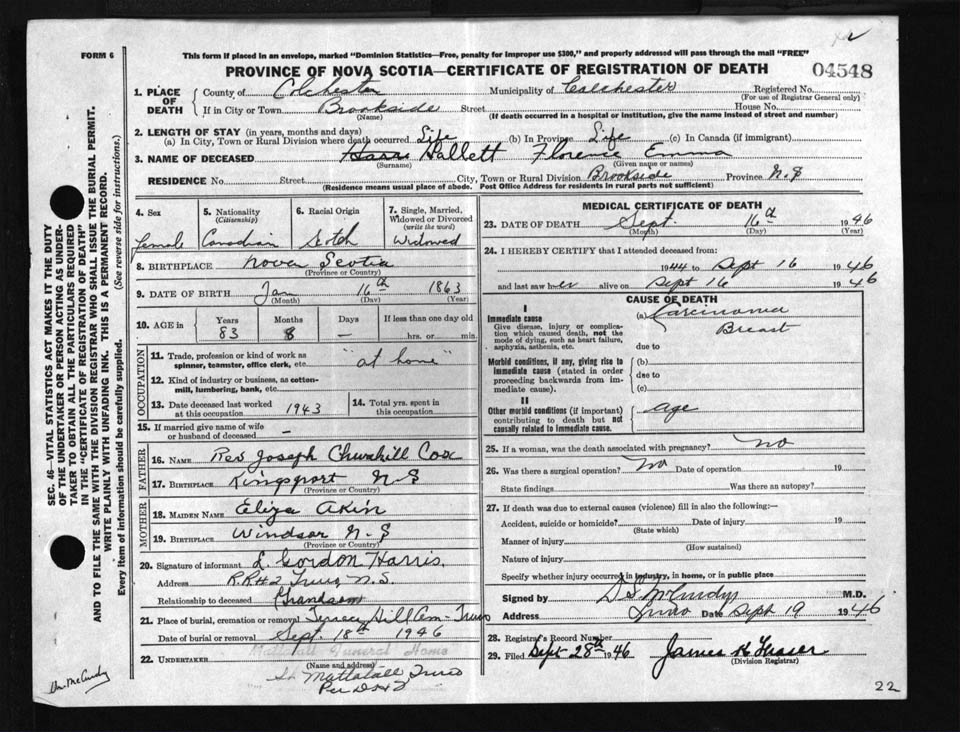 FORM 6
This form if placed in an envelope, marked "Dominion Statistics—Free, penalty for improper use $300," and properly addressed will pass through the mail "FREE"
PROVINCE OF NOVA SCOTIA—CERTIFICATE OF REGISTRATION OF DEATH
04548
1. PLACE OF DEATH
County of Colchester Municipality of Colchester Registered No.
(For use of Registrar General only)
If in City or Town Brookside Street House No.
(Name) (If death occurred in a hospital or institution, give the name instead of street and number)
2. LENGTH OF STAY (in years, months and days)
(a) In City, Town or Rural Division where death occurred Life (b) In Province Life (c) In Canada (if immigrant)
3. NAME OF DECEASED Harris Hallett Florence Emma
(Surname) (Given name or names)
RESIDENCE No. Street City, Town or Rural Division Brookside Province N.S
(Residence means usual place of abode. Post Office Address for residents in rural parts not sufficient)
4. Sex
female
5. Nationality
(Citizenship)
Canadian
6. Racial Origin
Scotch
7. Single, Married, Widowed or Divorced
(write the word)
Widowed
8. BIRTHPLACE Nova Scotia
(Province or Country)
9. DATE OF BIRTH Jan 16th 1863
(Month) (Day) (Year)
10. AGE in Years Months Days If less than one day old
83 8 — hrs. or min.
OCCUPATION
11. Trade, profession or kind of work as
spinner, teamster, office clerk, etc. "at home"
12. Kind of industry or business, as cotton-
mill, lumbering, bank, etc.
13. Date deceased last worked
at this occupation 1943
14. Total yrs. spent in
this occupation
15. If married give name of wife
or husband of deceased —
FATHER
16. NAME Rev Joseph Churchill Cox
17. BIRTHPLACE Kingsport N S
(Province or Country)
MOTHER
18. MAIDEN NAME Eliza Akin
19. BIRTHPLACE Windsor N.S
(Province or Country)
20. Signature of informant L. Gordon Harris
Address R.R#2 Truro N.S.
Relationship to deceased Grandson
21. Place of burial, cremation or removal Terrace Hill Cem - Truro
Date of burial or removal Sept. 18th 1946
Mattatall Funeral Home
22. UNDERTAKER
(Name and address)
Mattatall Truro
MEDICAL CERTIFICATE OF DEATH
23. DATE OF DEATH Sept. 16th 1946
(Month) (Day) (Year)
24. I HEREBY CERTIFY that I attended deceased from:
1944 to Sept 16 1946
and last saw her alive on Sept 16 1946
CAUSE OF DEATH
I
Immediate cause
(a) Carcinoma
Breast
Give disease, injury or complica-
tion which caused death, not the
mode of dying, such as heart failure,
asphyxia, asthenia, etc.
due to
Morbid conditions, if any, giving rise to
immediate cause (stated in order
proceeding backwards from im-
mediate cause).
(b)
due to
(c)
II
Other morbid conditions (if important)
contributing to death but not
causally related to immediate cause.
age
25. If a woman, was the death associated with pregnancy? no
26. Was there a surgical operation? No Date of operation 19
State findings Was there an autopsy?
27. If death was due to external causes (violence) fill in also the following:—
Accident, suicide or homicide? Date of injury 19
(State which)
Manner of injury
(How sustained)
Nature of injury
Specify whether injury occurred in industry, in home, or in public place
Signed by D S McCurdy M.D.
Address Truro Date Sept 19 1946
28. Registrar's Record Number
29. Filed Sept 28th 1946 James K Fraser
(Division Registrar)
22
SEC. 46- VITAL STATISTICS ACT MAKES IT THE DUTY
OF THE UNDERTAKER OR PERSON ACTING AS UNDER-
TAKER TO OBTAIN ALL THE PARTICULARS REQUIRED
IN THE "CERTIFICATE OF REGISTRATION OF DEATH"
AND TO FILE THE SAME WITH THE DIVISION REGISTRAR WHO SHALL ISSUE THE BURIAL PERMIT.
WRITE PLAINLY WITH UNFADING INK. THIS IS A PERMANENT RECORD.
Every item of information should be carefully supplied. (See reverse side for instructions.)
Dr. McCurdy